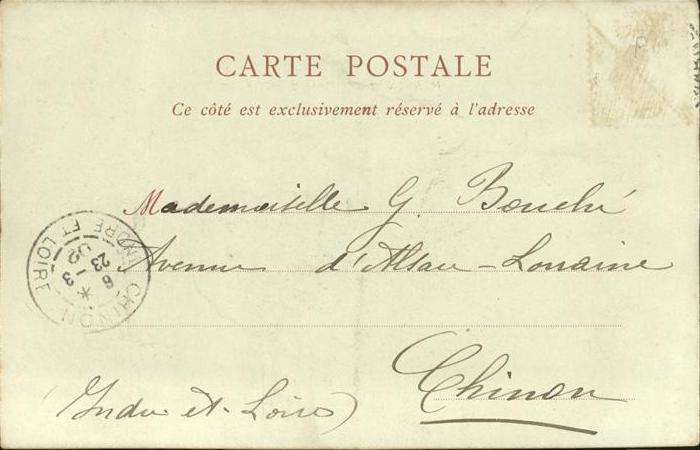 CARTE POSTALE
Ce côté est exclusivement réservé à l'adresse
Mademoiselle G. Bouché
Avenue d'Alsace-Lorraine
Chinon
(Indre et-Loire)
CHINON
INDRE ET LOIRE
23